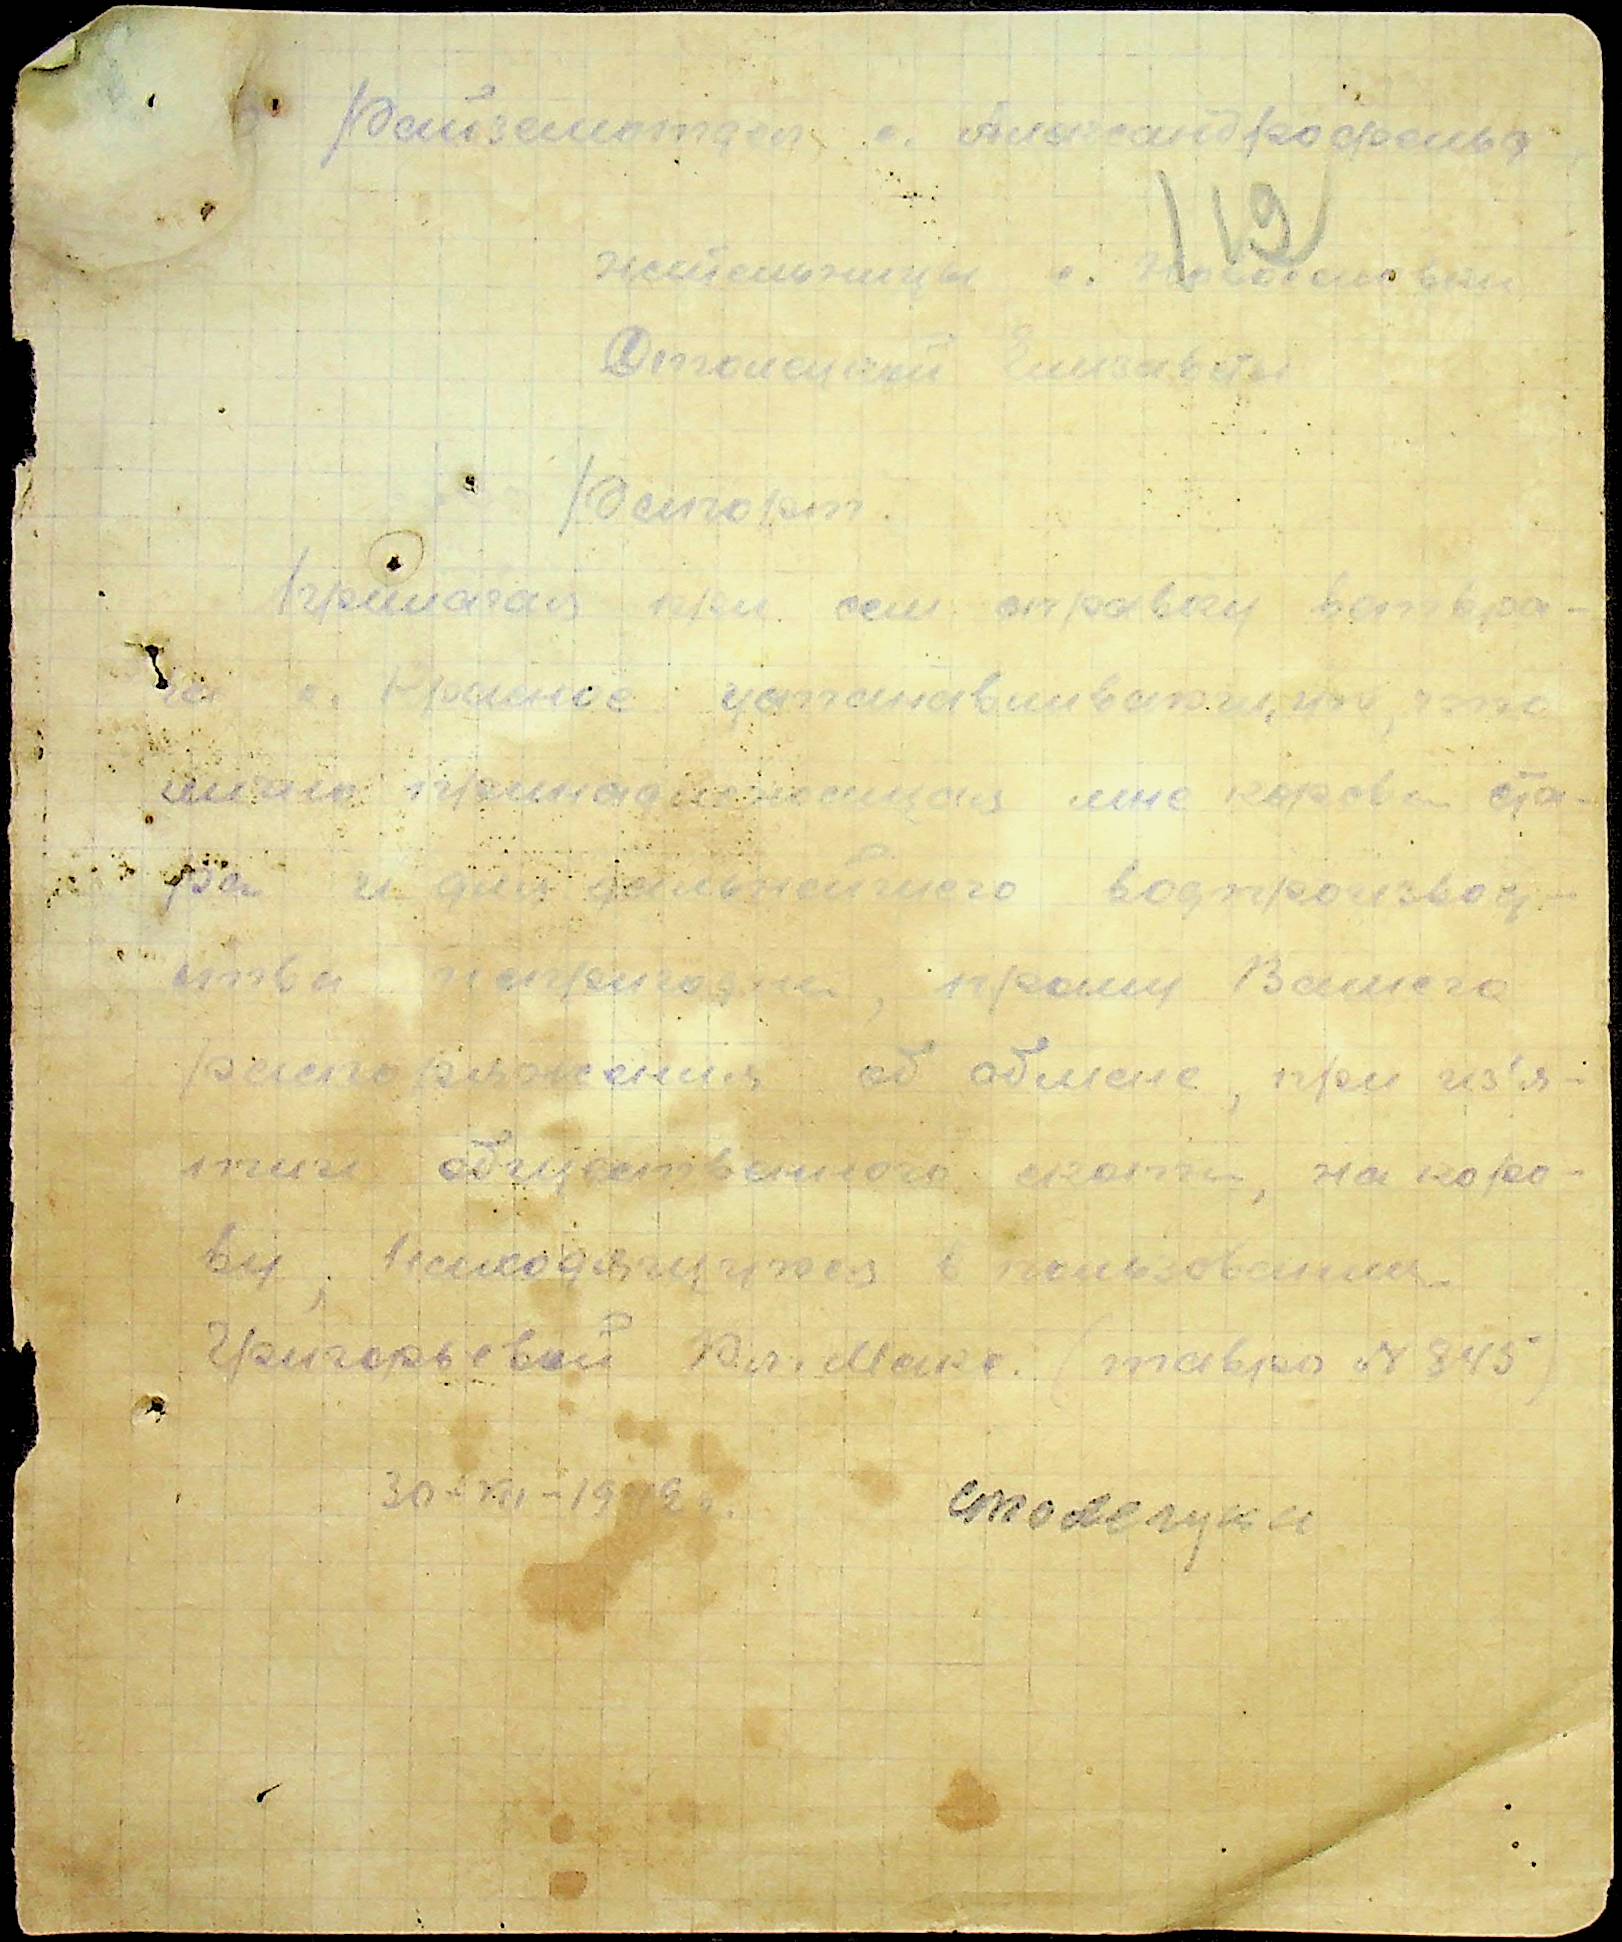 Райземотдел с. Александрофельд
119
жительницы с.
Елизаветы
Рапорт.
Прилагая при сем справку ветвра-
ча с. Красное устанавливающую, что
принадлежащая мне корова ста-
ра и для дальнейшего водпроизвод-
ства непригодна, прошу Вашего
распоряжения об обмене, при из'я-
тии общественного скота, на коро-
ву, находящуюся в пользовании
Григорьевой Макс. (тавро № 845)
30-XII-1942г.